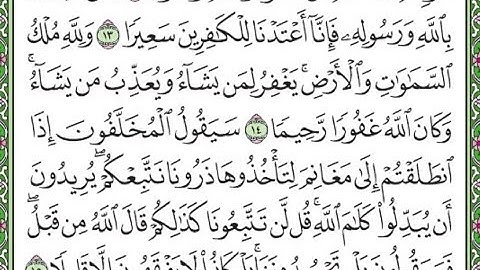 بِٱللَّهِ وَرَسُولِهِۦ فَإِنَّآ أَعۡتَدۡنَا لِلۡكَٰفِرِينَ سَعِيرٗا ١٣ وَلِلَّهِ مُلۡكُ
ٱلسَّمَٰوَٰتِ وَٱلۡأَرۡضِۚ يَغۡفِرُ لِمَن يَشَآءُ وَيُعَذِّبُ مَن يَشَآءُۚ
وَكَانَ ٱللَّهُ غَفُورٗا رَّحِيمٗا ١٤ سَيَقُولُ ٱلۡمُخَلَّفُونَ إِذَا
ٱنطَلَقۡتُمۡ إِلَىٰ مَغَانِمَ لِتَأۡخُذُوهَا ذَرُونَا نَتَّبِعۡكُمۡۖ يُرِيدُونَ
أَن يُبَدِّلُواْ كَلَٰمَ ٱللَّهِۚ قُل لَّن تَتَّبِعُونَا كَذَٰلِكُمۡ قَالَ ٱللَّهُ مِن قَبۡلُۖ
فَسَيَقُولُونَ بَلۡ تَحۡسُدُونَنَاۚ بَلۡ كَانُواْ لَا يَفۡقَهُونَ إِلَّا قَلِيلٗا ١٥